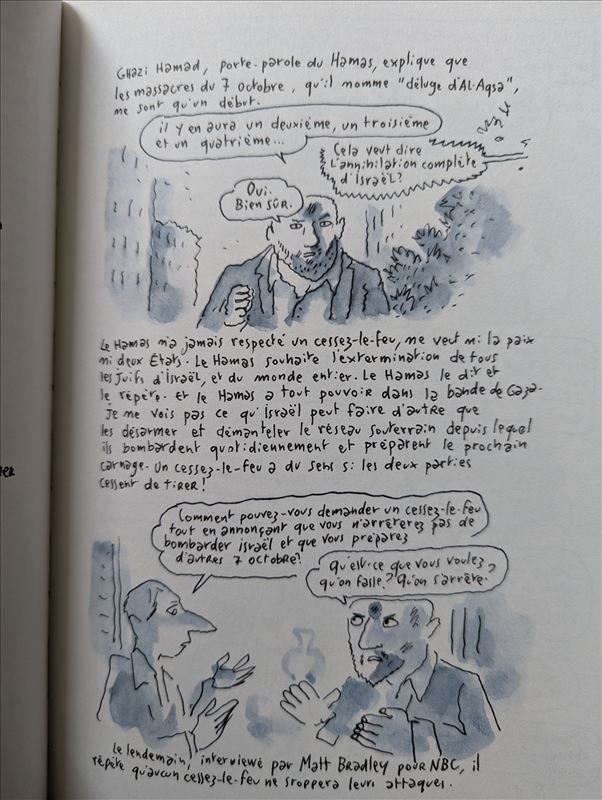 Ghazi Hamad, porte-parole du Hamas, explique que
les massacres du 7 octobre, qu'il nomme "déluge d'Al-Aqsa",
ne sont qu'un début.
il y en aura un deuxième, un troisième
et un quatrième...
Cela veut dire
l'annihilation complète
d'Israël?
Oui.
Bien sûr.
Le Hamas n'a jamais respecté un cessez-le-feu, ne veut ni la paix
ni deux États. Le Hamas souhaite l'extermination de tous
les Juifs d'Israël, et du monde entier. Le Hamas le dit et
le répète. Et le Hamas a tout pouvoir dans la bande de Gaza.
Je ne vois pas ce qu'Israël peut faire d'autre que
les désarmer et démanteler le réseau souterrain depuis lequel
ils bombardent quotidiennement et préparent le prochain
carnage. Un cessez-le-feu a du sens si les deux parties
cessent de tirer!
Comment pouvez-vous demander un cessez-le-feu
tout en annonçant que vous n'arrêterez pas de
bombarder Israël et que vous préparez
d'autres 7 octobre?
Qu'est-ce que vous voulez
qu'on fasse? Qu'on s'arrête?
Le lendemain, interviewé par Matt Bradley pour NBC, il
répète qu'aucun cessez-le-feu ne stoppera leurs attaques.